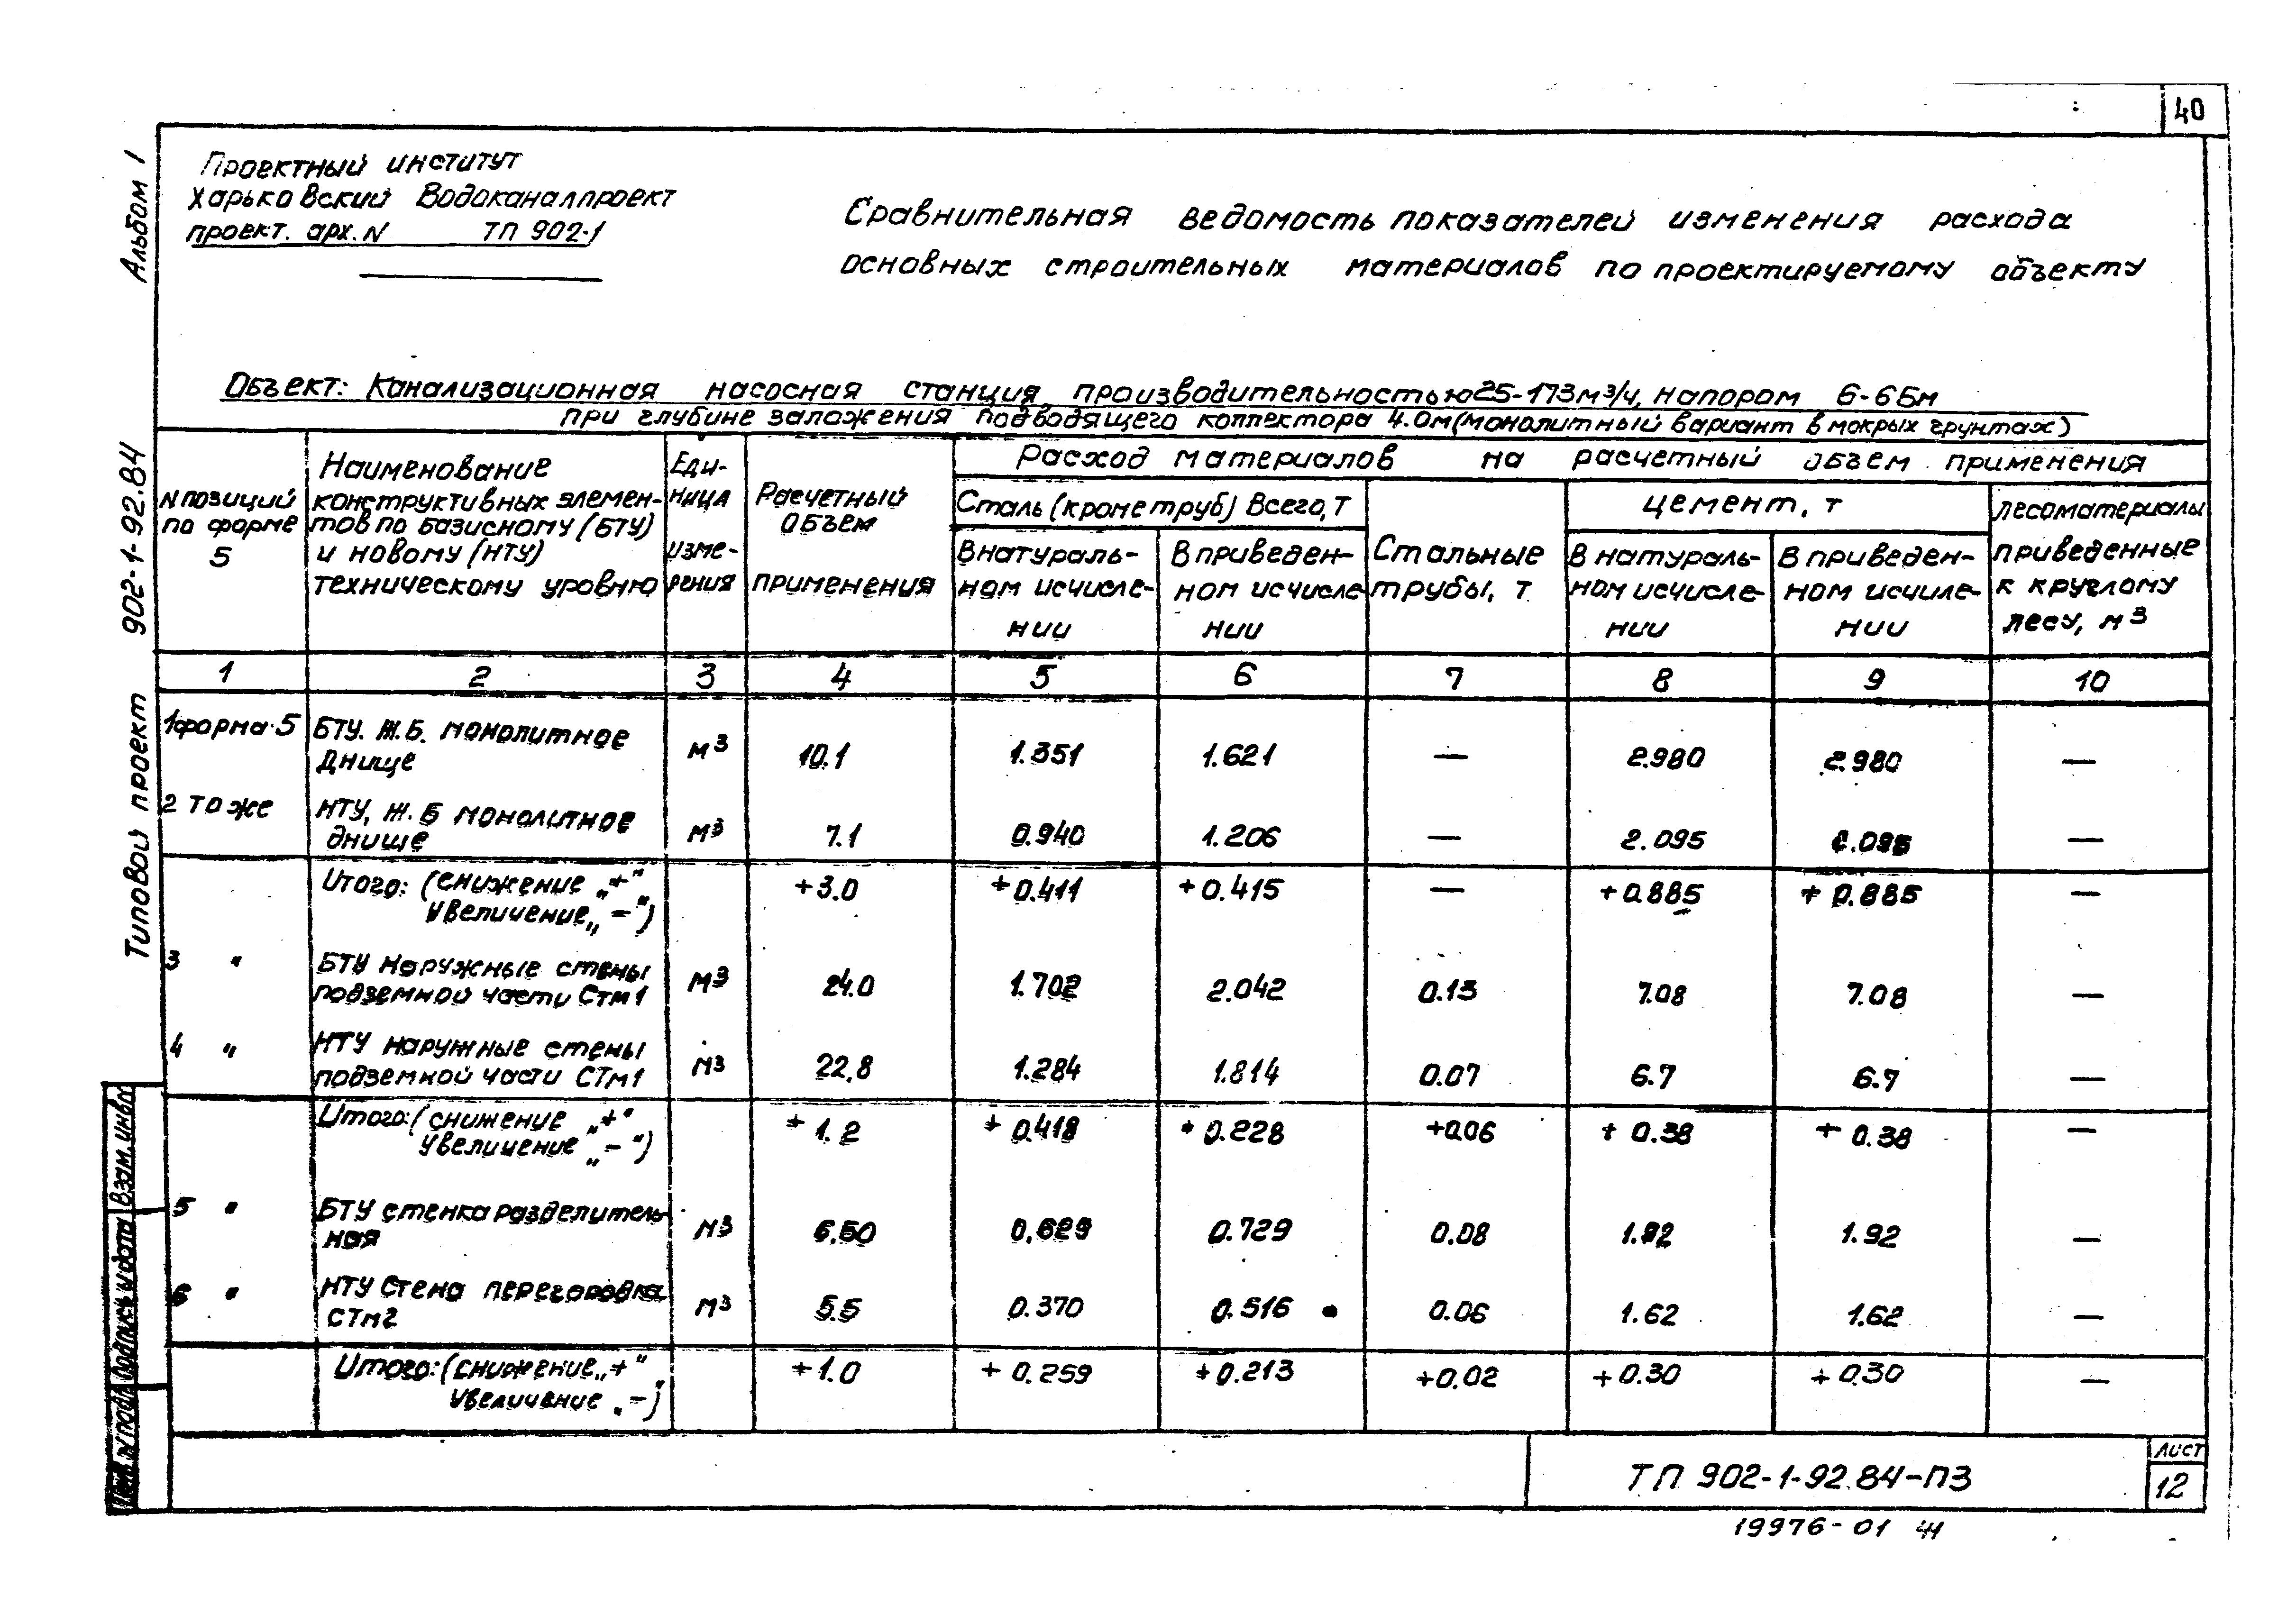 40
Альбом I
Типовой проект 902-1-92.84
Проектный институт
Харьковский Водоканалпроект
проект. арх. N ТП 902-1
Сравнительная ведомость показателей изменения расхода
основных строительных материалов по проектируемому объекту
Объект: Канализационная насосная станция, производительностью 25-173 м³/ч, напором 6-66м
при глубине заложения подводящего коллектора 4.0м (монолитный вариант в мокрых грунтах)
N позиций по форме 5
Наименование конструктивных элементов по базисному (БТУ) и новому (НТУ) техническому уровню
Единица измерения
Расчетный объем применения
Расход материалов на расчетный объем применения
Сталь (кроме труб) Всего, т
В натуральном исчислении
В приведенном исчисле нии
Стальные трубы, т
Цемент, т
В натуральном исчислении
В приведенном исчилении
Лесоматериалы приведенные к круглому лесу, м³
1 2 3 4 5 6 7 8 9 10
1 форма 5 БТУ. Ж.Б. монолитное днище м³ 10.1 1.351 1.621 — 2.980 2.980 —
2 то же НТУ, Ж.Б монолитное днище м³ 7.1 0.940 1.206 — 2.095 2.095 —
Итого: (снижение „+" увеличение „-") +3.0 +0.411 +0.415 — +0.885 +0.885 —
3 " БТУ наружные стены подземной части Стм1 м³ 24.0 1.702 2.042 0.13 7.08 7.08 —
4 " НТУ наружные стены подземной части Стм1 м³ 22,8 1.284 1.814 0.07 6.7 6.7 —
Итого: (снижение „+" увеличение „-") +1.2 +0.418 +0.228 +0.06 +0.38 +0.38 —
5 " БТУ стенка разделительная м³ 6.50 0,629 0.729 0.08 1.92 1.92 —
6 " НТУ Стена перегородка СТм2 м³ 5.5 0.370 0.516 0.06 1.62 1.62 —
Итого: (снижение „+" увеличение „-") +1.0 +0.259 +0.213 +0.02 +0.30 +0.30 —
Инв. N подл. Подпись и дата Взам. инв. N
ТП 902-1-92.84-ПЗ
Лист
12
19976-01 41